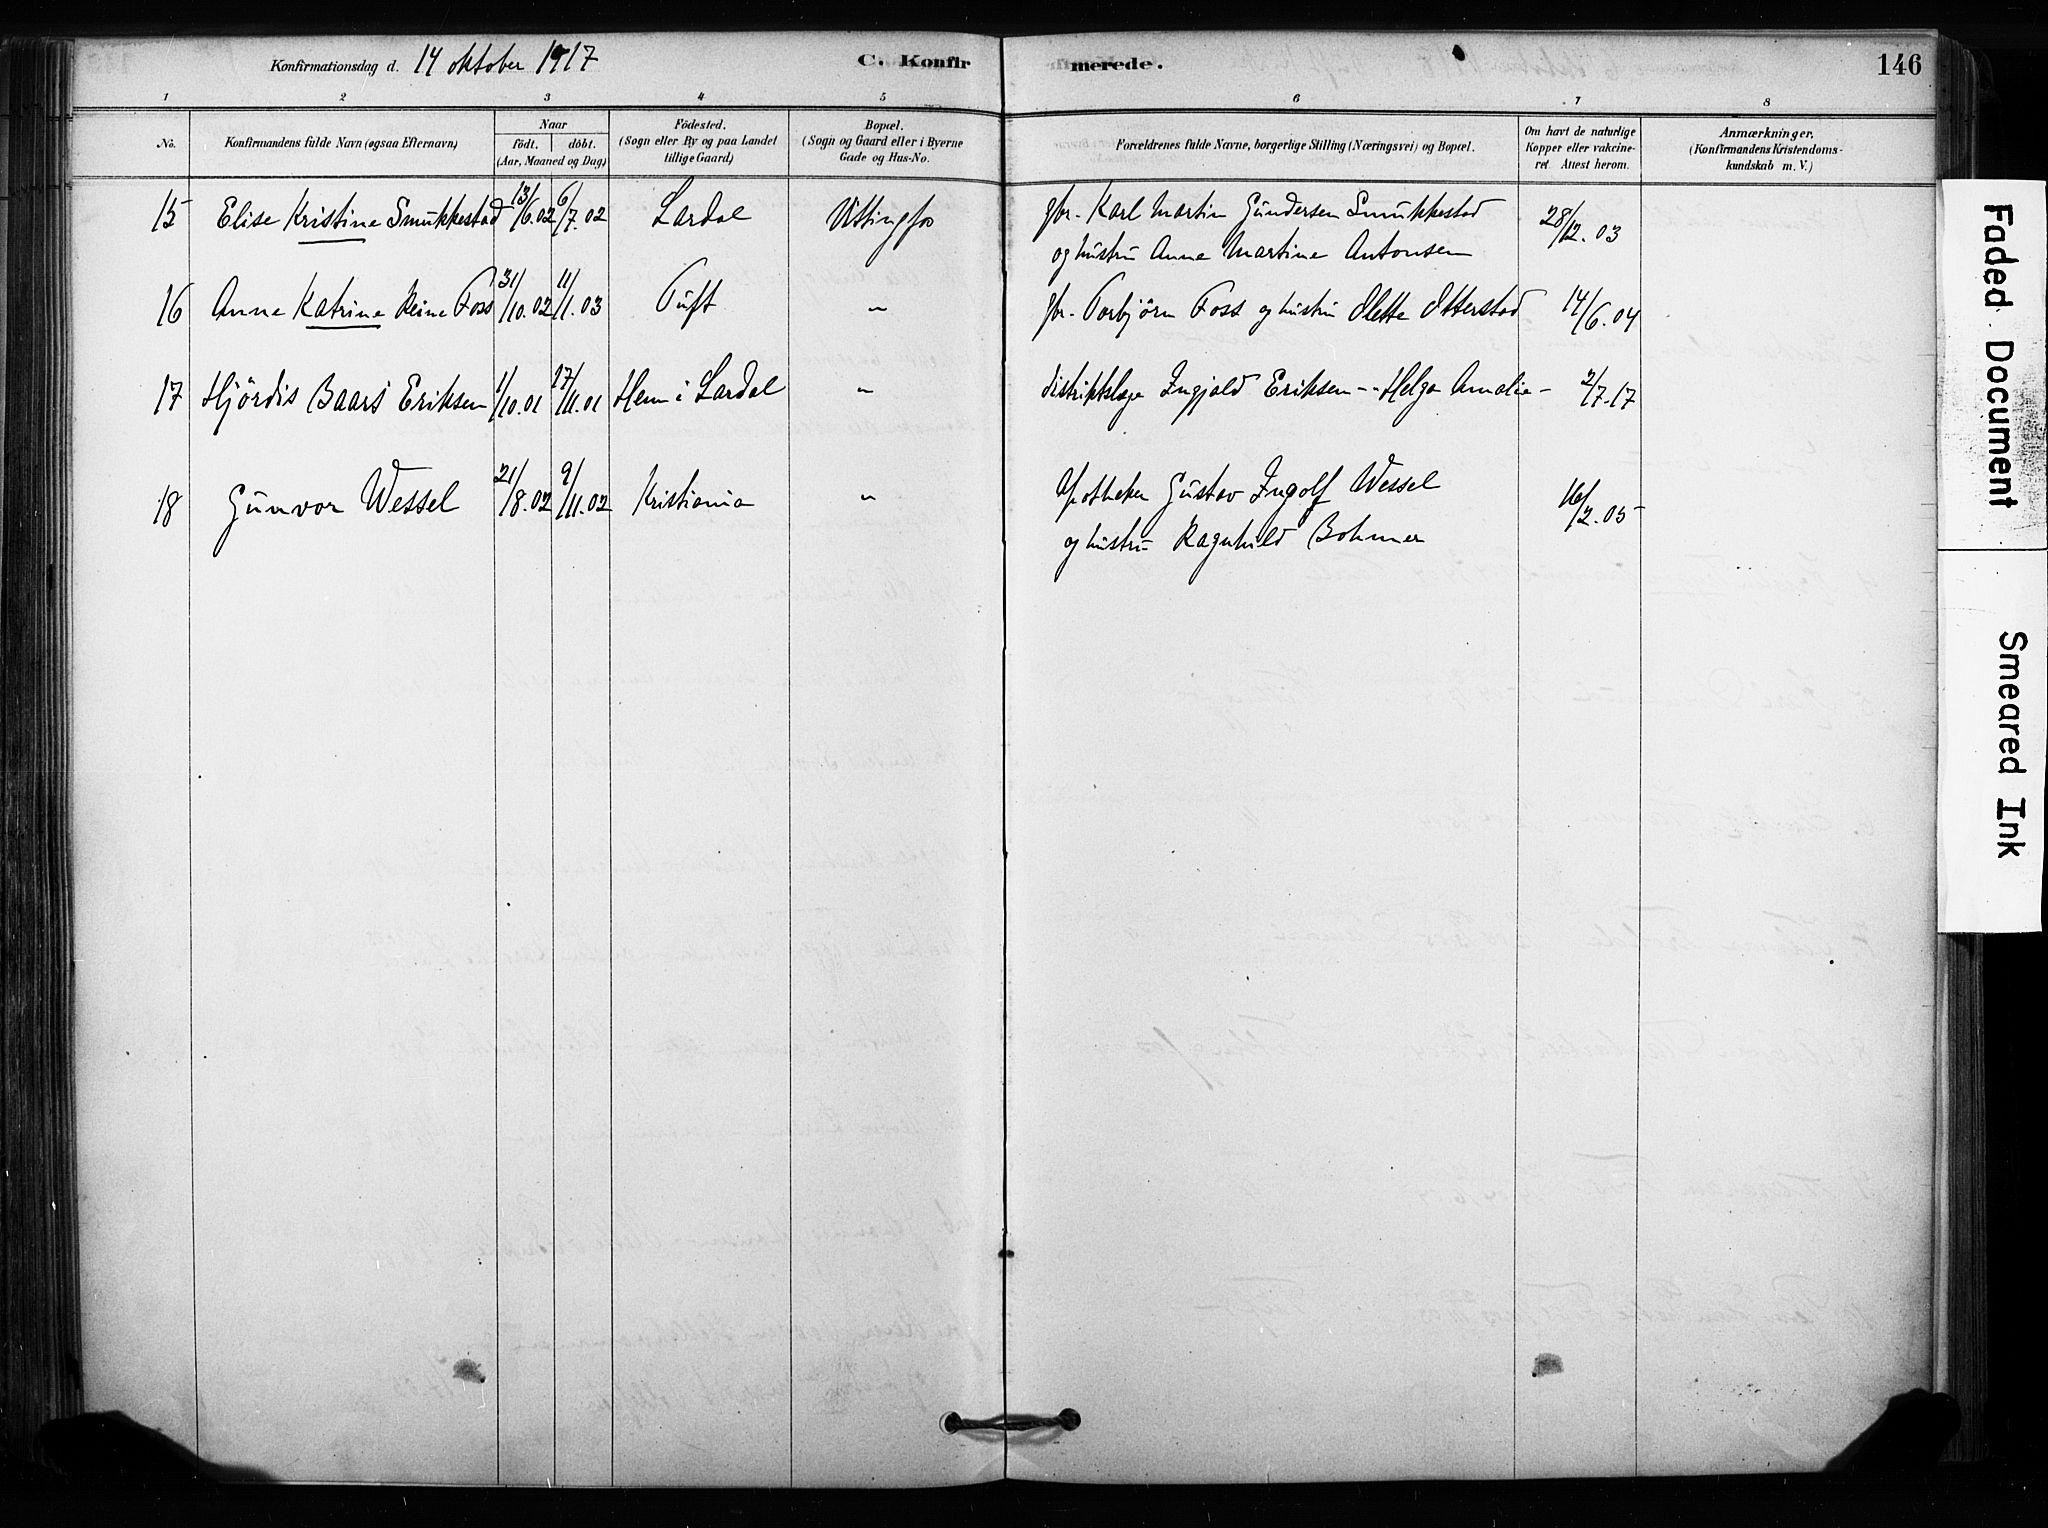 Konfirmationsdag d. 14 oktober 1917
C. Konfir
merede.
146
1 2 3 4 5 6 7 8
No.
Konfirmandens fulde Navn (ogsaa Efternavn)
Naar
födt. döbt.
(Aar, Maaned og Dag)
Födested.
(Sogn eller By og paa Landet
tillige Gaard)
Bopæl.
(Sogn og Gaard eller i Byerne
Gade og Hus-No.
Forældrenes fulde Navne, borgerlige Stilling (Næringsvei) og Bopæl.
Om havt de naturlige
Kopper eller vakcine-
ret Attest herom.
Anmærkninger.
(Konfirmandens Kristendoms-
kundskab m. V.)
15 Elise Kristine Smukkestad 13/6.02 6/7.02 Lardal Vittingfos gbr. Karl Martin Gundersen Smukkestad 28/12.03
og hustru Anne Martine Antonsen
16 Anne Katrine Reine Foss 31/10.02 11/1.03 Tuft " gbr. Torbjörn Foss og hustru Olette Otterstad 14/6.04
17 Hjördis Baars Eriksen 1/10.01 17/11.01 Hem i Lardal " distriktslæge Ingjald Eriksen - " - Helga Amalie - 2/7.17
18 Gunvor Wessel 21/8.02 9/11.02 Kristiania " Apotheker Gustav Ingolf Wessel 16/2.05
og hustru Ragnhild Bohmer
Faded Document
Smeared Ink